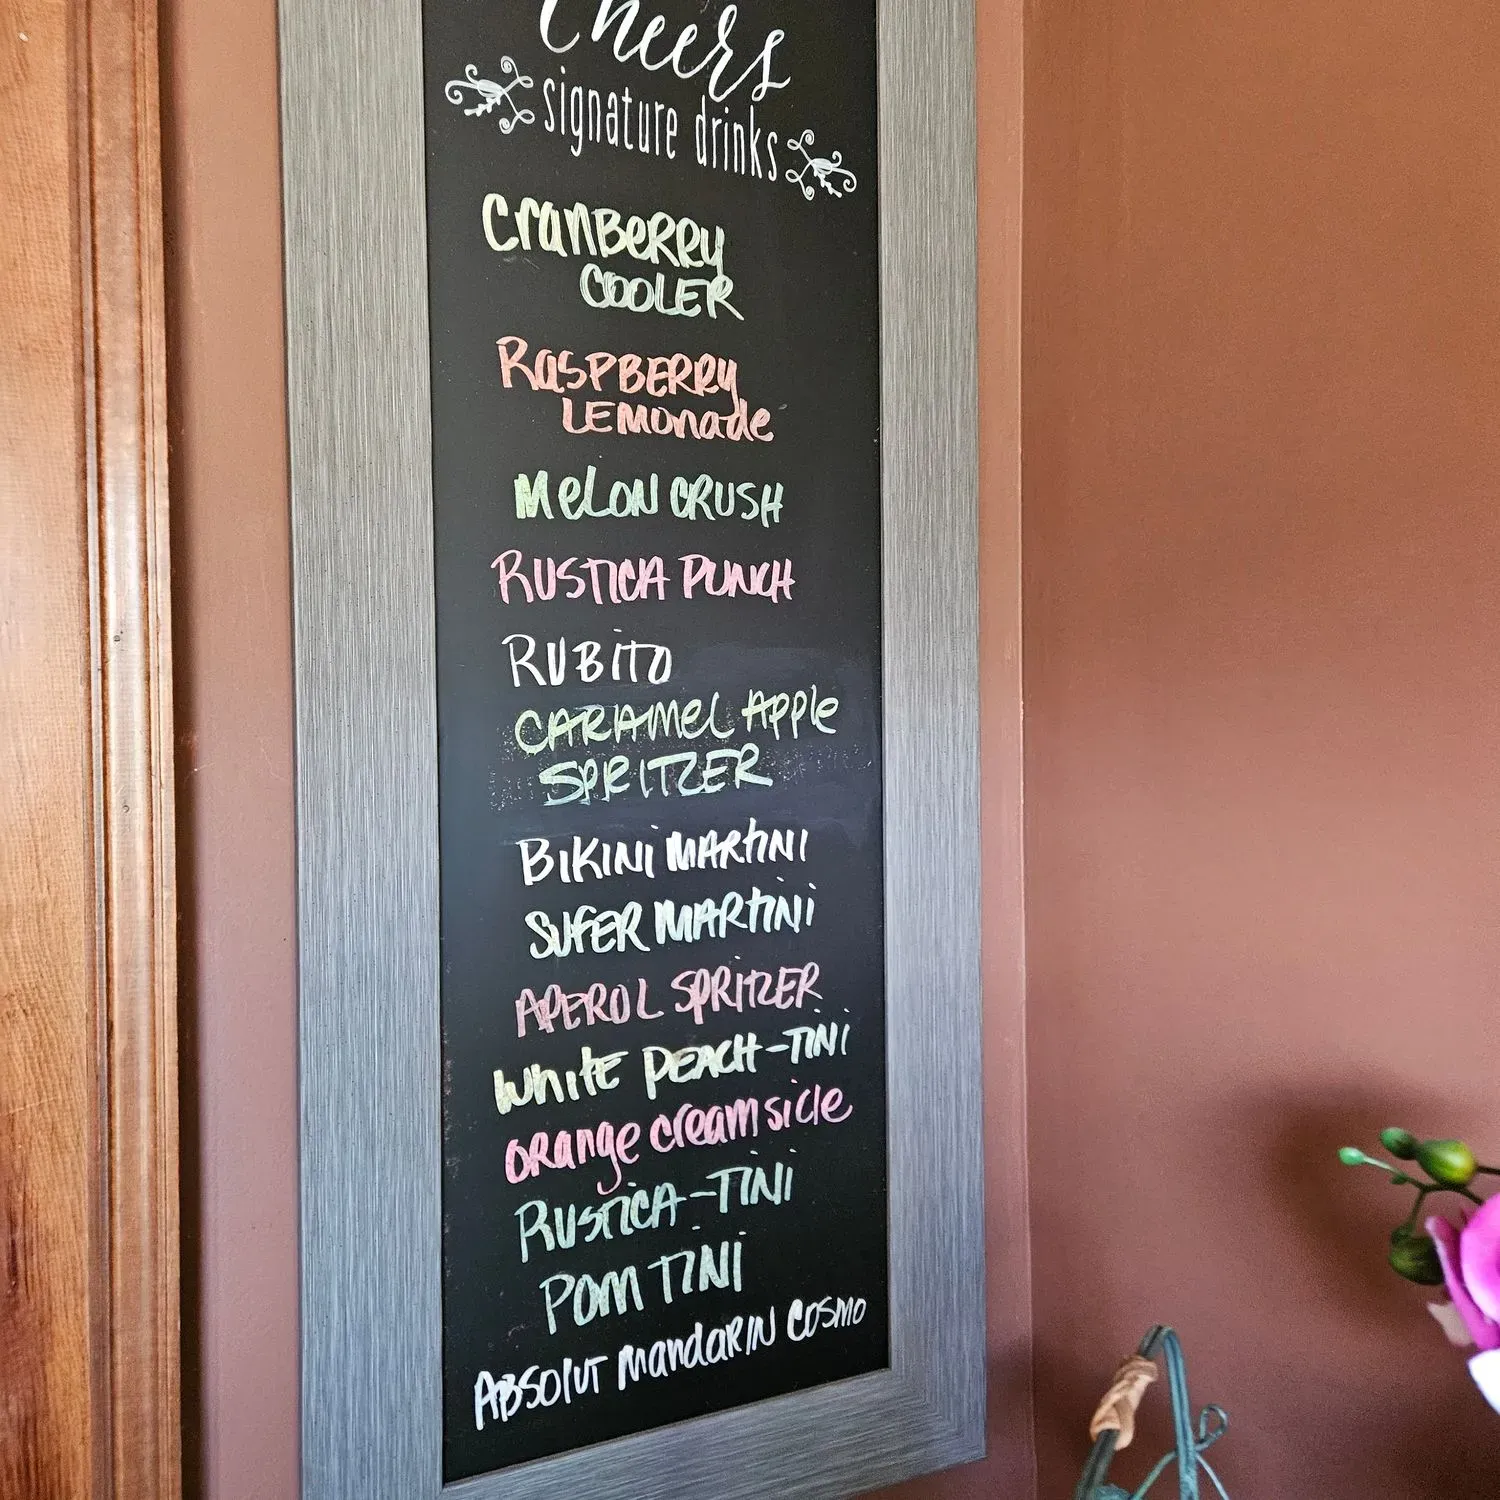 Cheers
signature drinks
CranBeRRy
COOLER
RaSPBERRy
LEMonade
MeLON CRUSH
RUSTICA PUNCH
RUBiTO
CARAMeL APPle
SPRITZER
BIKINi MARtiNI
SUFER MARtiNi
APEROL SPRITZER
White PEACH-TiNi
ORange CReam sicle
RUSTiCA-TiNi
POM TiNi
ABSOlUT MandaRIN COSMO